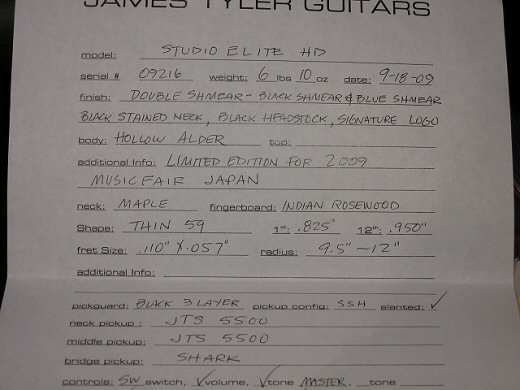 JAMES TYLER GUITARS
model: STUDIO ELITE HD
serial #. 09216 weight: 6 lbs 10 oz date: 9-18-09
finish: DOUBLE SHMEAR - BLACK SHMEAR & BLUE SHMEAR
BLACK STAINED NECK, BLACK HEADSTOCK, SIGNATURE LOGO
body: HOLLOW ALDER top:
additional Info: LIMITED EDITION FOR 2009
MUSIC FAIR JAPAN
neck: MAPLE fingerboard: INDIAN ROSEWOOD
Shape: THIN 59 1st: .825" 12th: .950"
fret Size: .110" X .057" radius: 9.5" ~ 12"
additional Info:
pickguard: BLACK 3 LAYER pickup config: SSH slanted: ✓
neck pickup : JTS 5500
middle pickup: JTS 5500
bridge pickup: SHARK
controls: SW switch, ✓ volume, ✓ tone MASTER, tone